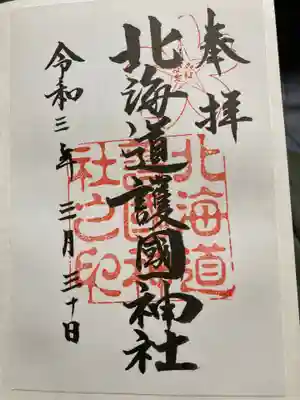 奉拝
北海道護國神社
北海道護國神社之印
令和三年三月三十日